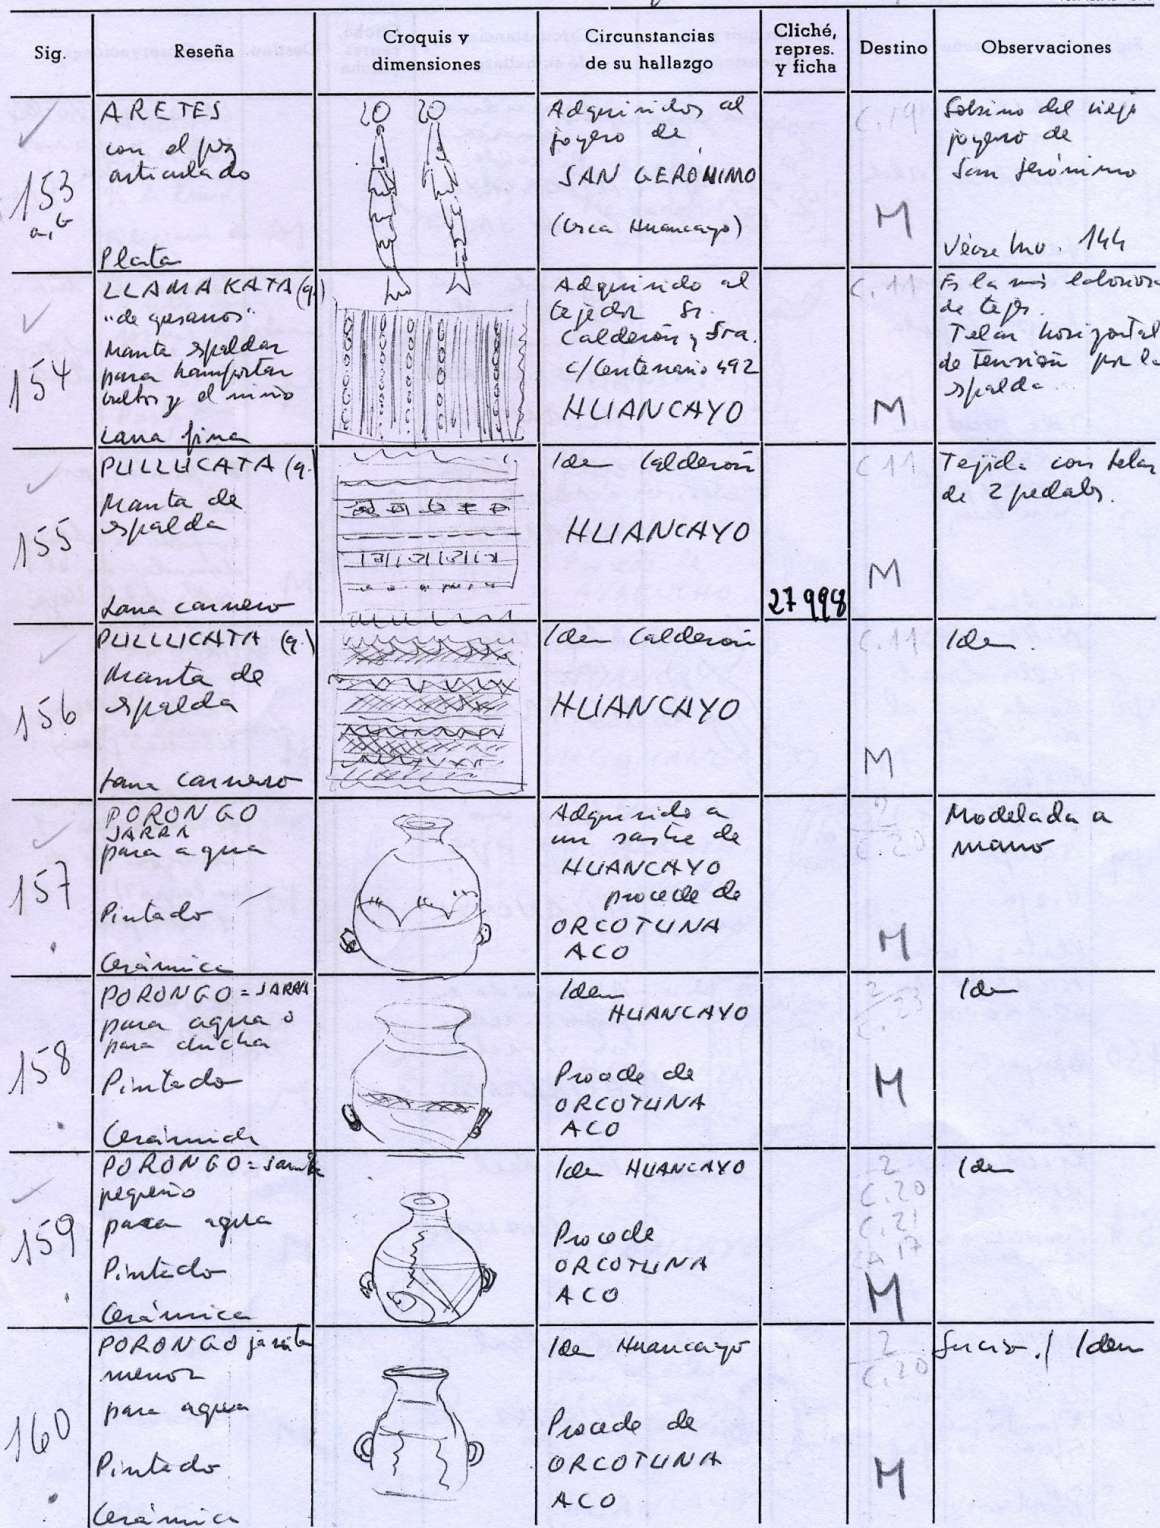 Sig.
Reseña
Croquis y
dimensiones
Circunstancias
de su hallazgo
Cliché,
repres.
y ficha
Destino
Observaciones
153
a, b
ARETES
con el pez
articulado
Plata
Adquiridos al
joyero de
SAN GERÓNIMO
(cerca Huancayo)
C.19
M
Sobrino del viejo
joyero de
San Jerónimo
Véase Inv. 144
154
LLAMA KATA (q.)
"de gusanos"
Manta espaldar
para transportar
bultos y el niño
Lana fina
Adquirido al
tejedor Sr.
Calderón y Sra.
c/Centenario 492
HUANCAYO
C.11
M
Es la más laboriosa
de tejer.
Telar horizontal
de tensión por la
espalda.
155
PULLUCATA (q.)
Manta de
espalda
Lana carnero
Idem Calderón
HUANCAYO
27998
C.11
M
Tejida con telar
de 2 pedales.
156
PULLUCATA (q.)
Manta de
espalda
Lana carnero
Idem Calderón
HUANCAYO
C.11
M
Idem.
157
PORONGO
JARRA
para agua
Pintado
Cerámica
Adquirido a
un sastre de
HUANCAYO
procede de
ORCOTUNA
ACO
C.20
M
Modelada a
mano
158
PORONGO = JARRA
para agua o
para chicha
Pintado
Cerámica
Idem
HUANCAYO
Procede de
ORCOTUNA
ACO
M
Idem
159
PORONGO = Jarrita
pequeño
para agua
Pintado
Cerámica
Idem HUANCAYO
Procede
ORCOTUNA
ACO
2
C.20
C.21
17
M
Idem
160
PORONGO jarrita
menor
para agua
Pintado
Cerámica
Idem Huancayo
Procede de
ORCOTUNA
ACO
2
C.20
M
Sucio. / Idem